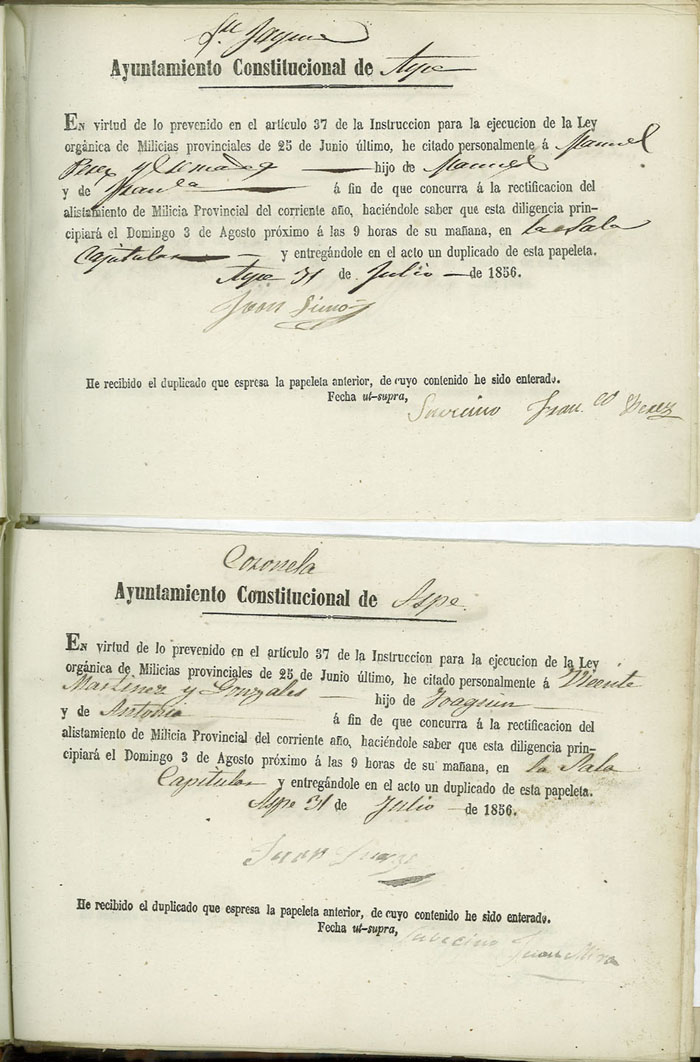 Jayme
Ayuntamiento Constitucional de Aspe
EN virtud de lo prevenido en el artículo 37 de la Instruccion para la ejecucion de la Ley
orgánica de Milicias provinciales de 25 de Junio último, he citado personalmente á Manuel
Perez y hijo de Manuel
y de á fin de que concurra á la rectificacion del
alistamiento de Milicia Provincial del corriente año, haciéndole saber que esta diligencia prin-
cipiará el Domingo 3 de Agosto próximo á las 9 horas de su mañana, en la Sala
Capitular y entregándole en el acto un duplicado de esta papeleta.
Aspe 31 de Julio de 1856.
Juan
He recibido el duplicado que espresa la papeleta anterior, de cuyo contenido he sido enterado.
Fecha ut-supra,
Su vecino Fran.co Perez
Coronela
Ayuntamiento Constitucional de Aspe
EN virtud de lo prevenido en el artículo 37 de la Instruccion para la ejecucion de la Ley
orgánica de Milicias provinciales de 25 de Junio último, he citado personalmente á Vicente
Martinez y Gonzales hijo de Joaquin
y de Antonia á fin de que concurra á la rectificacion del
alistamiento de Milicia Provincial del corriente año, haciéndole saber que esta diligencia prin-
cipiará el Domingo 3 de Agosto próximo á las 9 horas de su mañana, en la Sala
Capitular y entregándole en el acto un duplicado de esta papeleta.
Aspe 31 de Julio de 1856.
Juan
He recibido el duplicado que espresa la papeleta anterior, de cuyo contenido he sido enterado.
Fecha ut-supra,
Su vecino Juan Mira